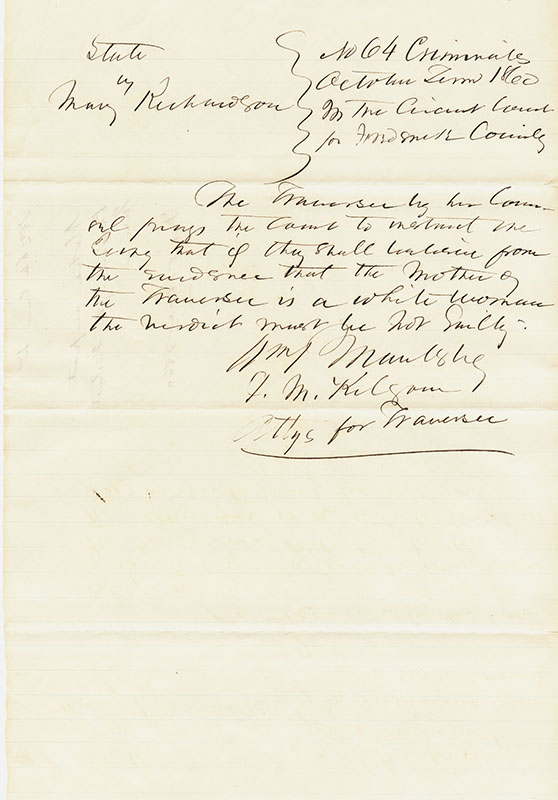 State
vs
Mary Richardson
No 64 Criminals
October Term 1860
In the Circuit Court
for Frederick County
The Traverser by her Coun-
sel prays the Court to instruct the
Jury that if they shall believe from
the evidence that the Mother of
the Traverser is a white woman
the verdict must be Not Guilty.
Wm P Maulsby
J. M. Kilgour
Attys for Traverser